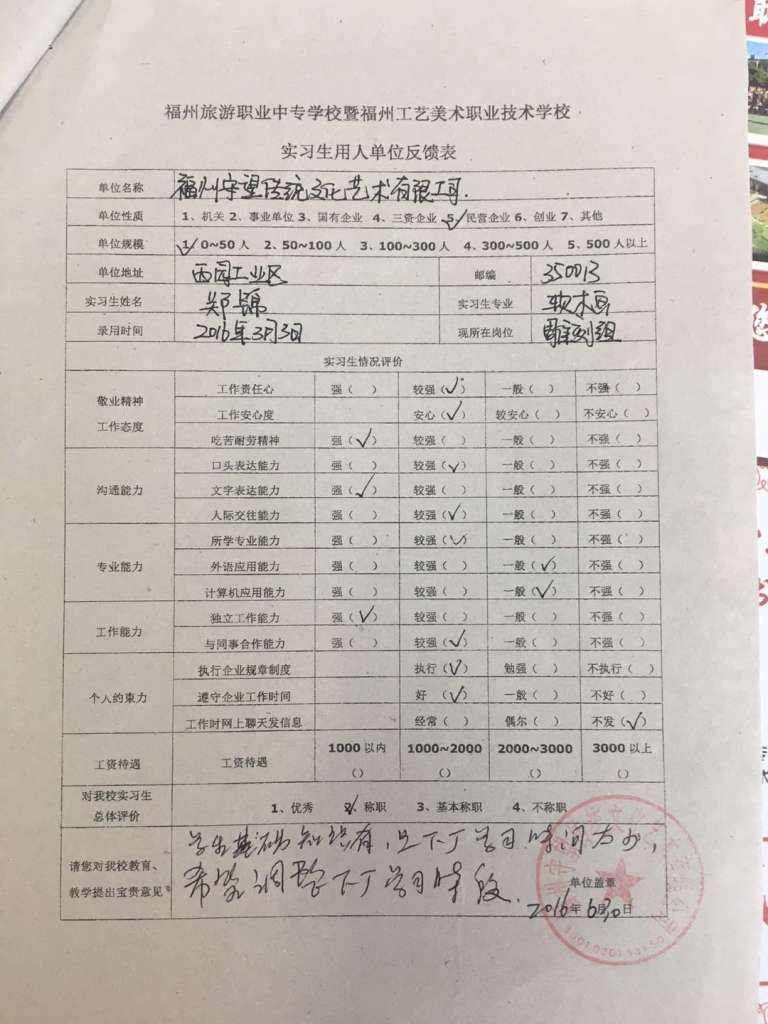 福州旅游职业中专学校暨福州工艺美术职业技术学校
实习生用人单位反馈表
单位名称 福州守望传统文化艺术有限公司.
单位性质 1、机关 2、事业单位 3、国有企业 4、三资企业 5、✓民营企业 6、创业 7、其他
单位规模 1、✓0~50人 2、50~100人 3、100~300人 4、300~500人 5、500人以上
单位地址 西园工业区 邮编 350013
实习生姓名 郑锦 实习生专业 软木画
录用时间 2016年3月3日 现所在岗位 雕刻组
实习生情况评价
敬业精神
工作态度
工作责任心 强( ) 较强(✓) 一般( ) 不强( )
工作安心度 安心(✓) 较安心( ) 不安心( )
吃苦耐劳精神 强(✓) 较强( ) 一般( ) 不强( )
沟通能力
口头表达能力 强( ) 较强(✓) 一般( ) 不强( )
文字表达能力 强(✓) 较强( ) 一般( ) 不强( )
人际交往能力 强( ) 较强(✓) 一般( ) 不强( )
专业能力
所学专业能力 强( ) 较强(✓) 一般( ) 不强( )
外语应用能力 强( ) 较强( ) 一般(✓) 不强( )
计算机应用能力 强( ) 较强( ) 一般(✓) 不强( )
工作能力
独立工作能力 强(✓) 较强( ) 一般( ) 不强( )
与同事合作能力 强( ) 较强(✓) 一般( ) 不强( )
个人约束力
执行企业规章制度 执行(✓) 勉强( ) 不执行( )
遵守企业工作时间 好(✓) 一般( ) 不好( )
工作时网上聊天发信息 经常( ) 偶尔( ) 不发(✓)
工资待遇 工资待遇 1000以内 1000~2000 2000~3000 3000以上
() () () ()
对我校实习生
总体评价
1、优秀 2、✓称职 3、基本称职 4、不称职
请您对我校教育、
教学提出宝贵意见
学生基础知识有,但下厂学习时间太少,
希望调整下厂学习时段.
单位盖章
2016年6月30日